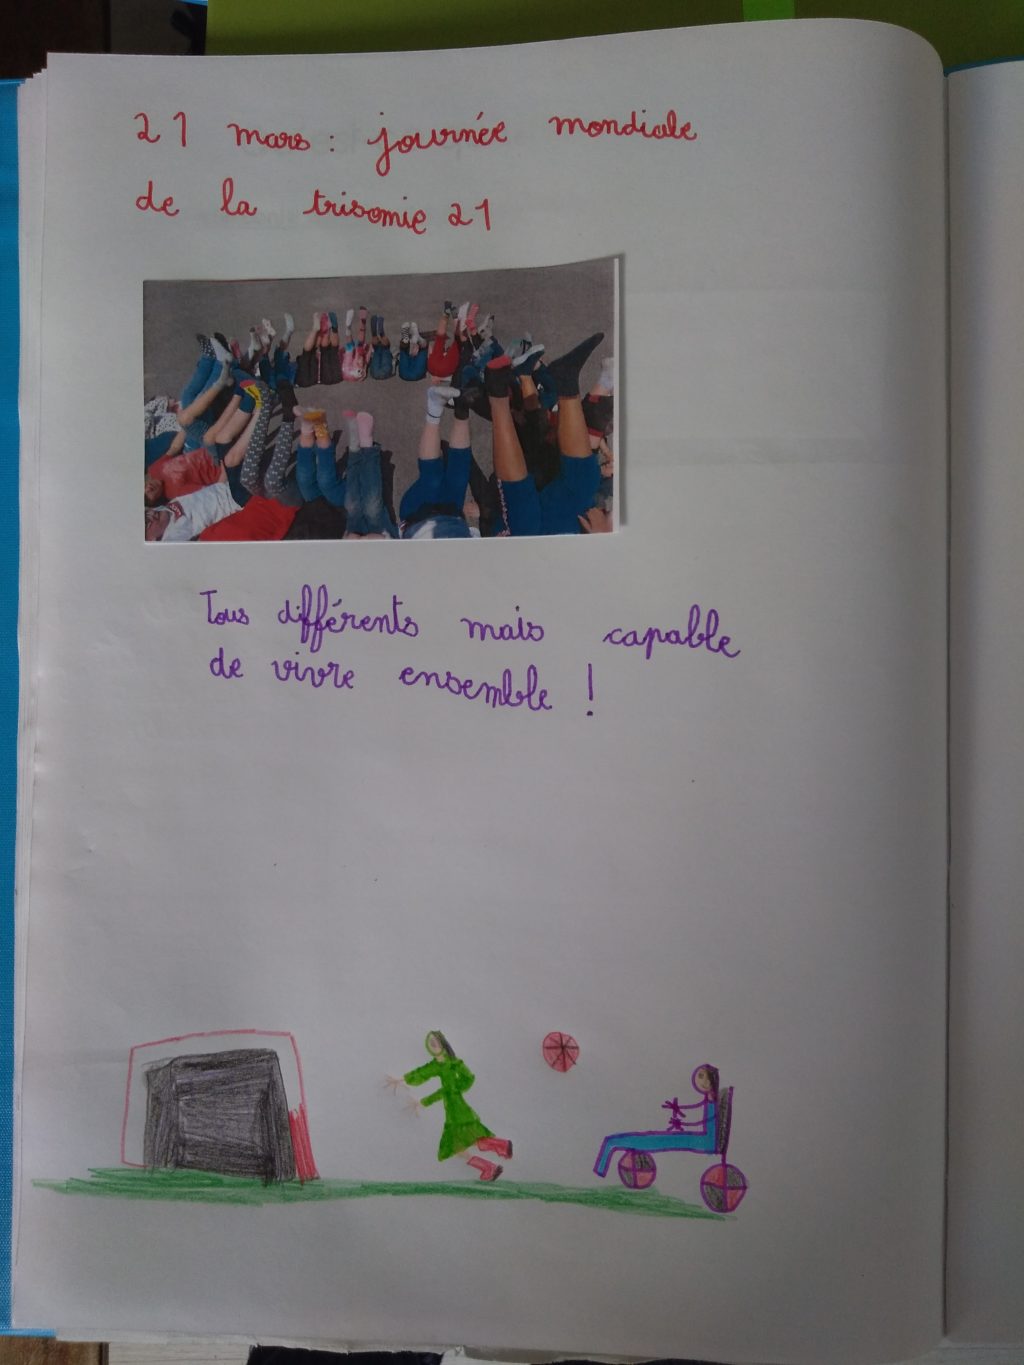 21 mars : journée mondiale
de la trisomie 21
Tous différents mais capable
de vivre ensemble !